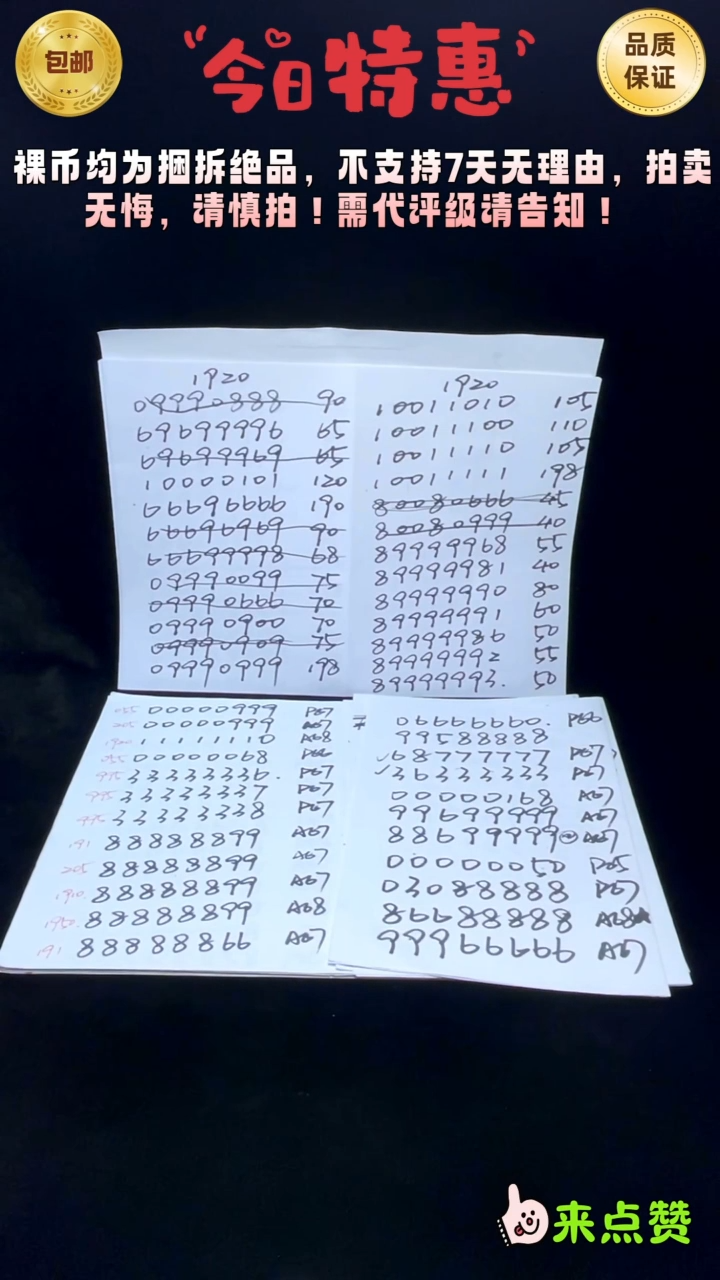 包邮
“今日特惠”
品质
保证
裸币均为捆拆绝品，不支持7天无理由，拍卖
无悔，请慎拍！需代评级请告知！
1920
09990888 90
69699996 65
69699969 65
10000101 120
66696666 190
66696969 90
66699998 68
09990099 75
09990666 70
09990900 70
09990909 75
09990999 198
1920
10011010 105
10011100 110
10011110 105
10011111 198
80080666 45
80080999 40
89999968 55
89999981 40
89999990 80
89999991 60
89999986 50
89999992 55
89999993. 50
055 00000999 P67
205 00000999 A67
1920 11111110 A68
055 00000068 P66
995 33333336. P67
995 33333337 P67
995 33333338 P67
191 88888899 A67
205 88888899 A67
1910 88888899 A67
1950 88888899 A68
191 88888866 A67
06666660. P66
99588888
✓68777777 P67
✓36333333 P67
00000168 A67
99699999 A67
88699999 A67
00000050 P65
03088888 P67
86688888 A68
99966666 A67
来点赞